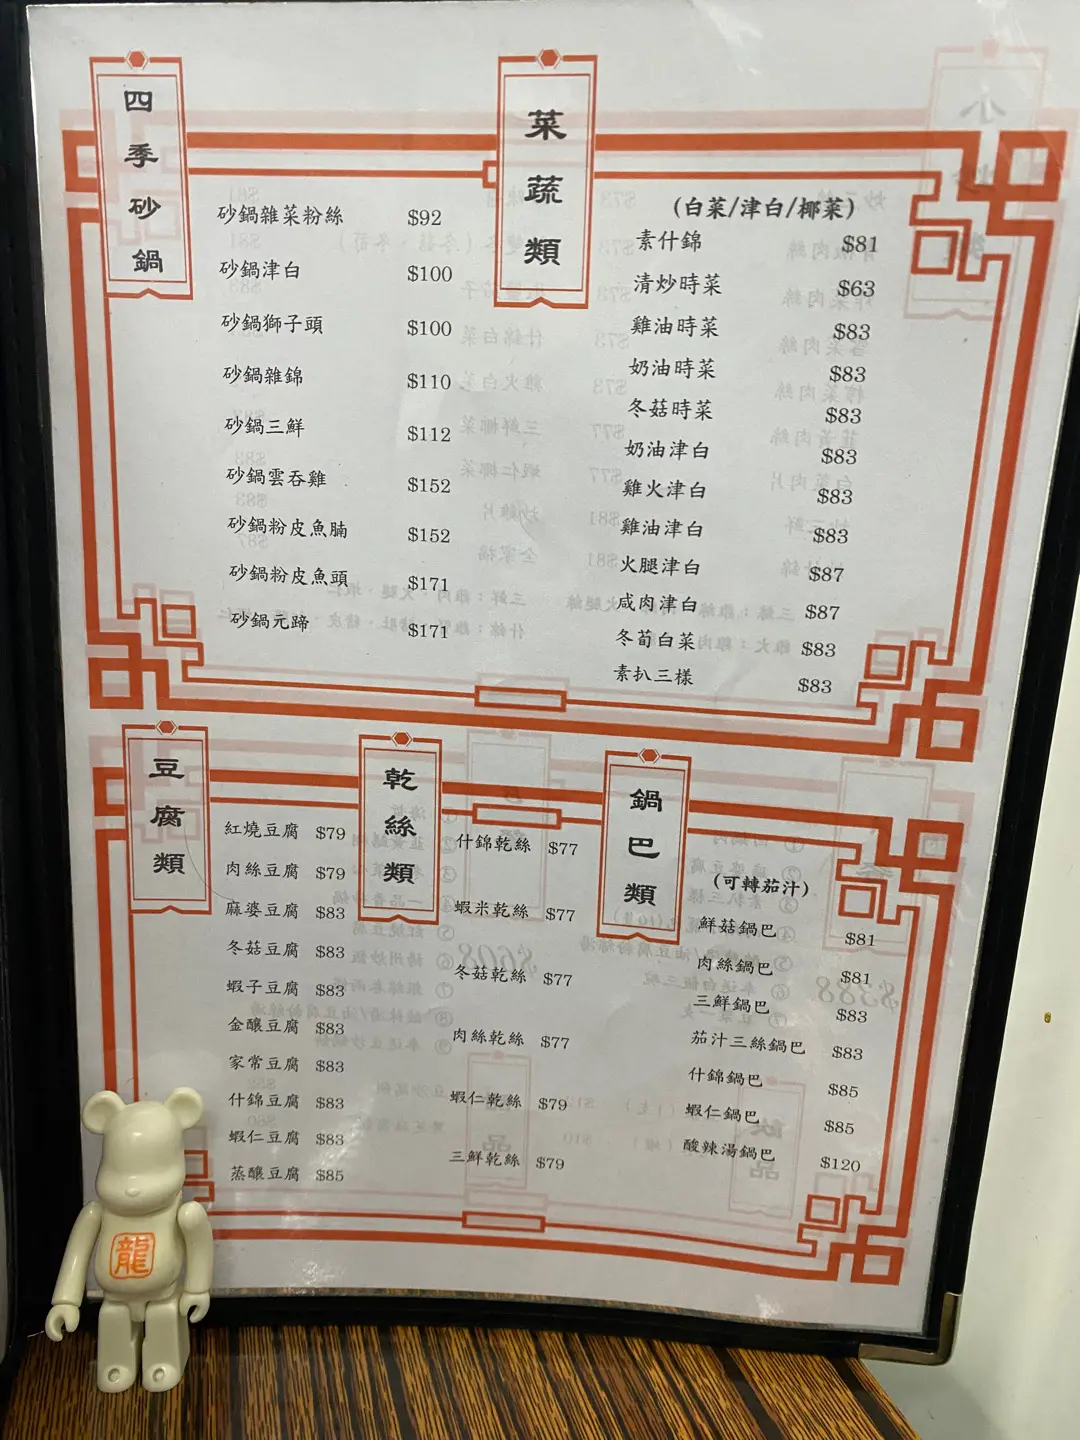 四季砂鍋
砂鍋雜菜粉絲 $92
砂鍋津白 $100
砂鍋獅子頭 $100
砂鍋雜錦 $110
砂鍋三鮮 $112
砂鍋雲吞雞 $152
砂鍋粉皮魚腩 $152
砂鍋粉皮魚頭 $171
砂鍋元蹄 $171
菜蔬類
(白菜/津白/椰菜)
素什錦 $81
清炒時菜 $63
雞油時菜 $83
奶油時菜 $83
冬菇時菜 $83
奶油津白 $83
雞火津白 $83
雞油津白 $83
火腿津白 $87
咸肉津白 $87
冬筍白菜 $83
素扒三樣 $83
豆腐類
紅燒豆腐 $79
肉絲豆腐 $79
麻婆豆腐 $83
冬菇豆腐 $83
蝦子豆腐 $83
金釀豆腐 $83
家常豆腐 $83
什錦豆腐 $83
蝦仁豆腐 $83
蒸釀豆腐 $85
乾絲類
什錦乾絲 $77
蝦米乾絲 $77
冬菇乾絲 $77
肉絲乾絲 $77
蝦仁乾絲 $79
三鮮乾絲 $79
鍋巴類
(可轉茄汁)
鮮菇鍋巴 $81
肉絲鍋巴 $81
三鮮鍋巴 $83
茄汁三絲鍋巴 $83
什錦鍋巴 $85
蝦仁鍋巴 $85
酸辣湯鍋巴 $120
龍